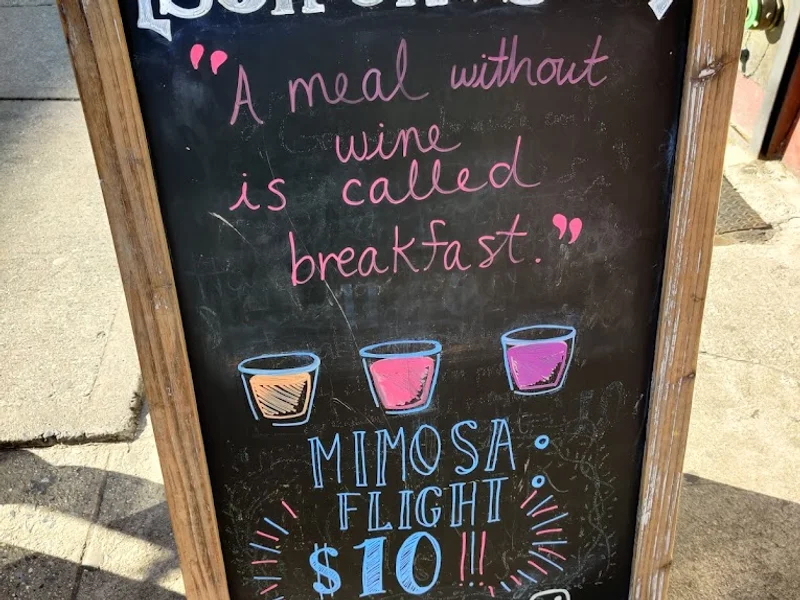 "A meal without
wine
is called
breakfast."
MIMOSA:
FLIGHT
$10!!!